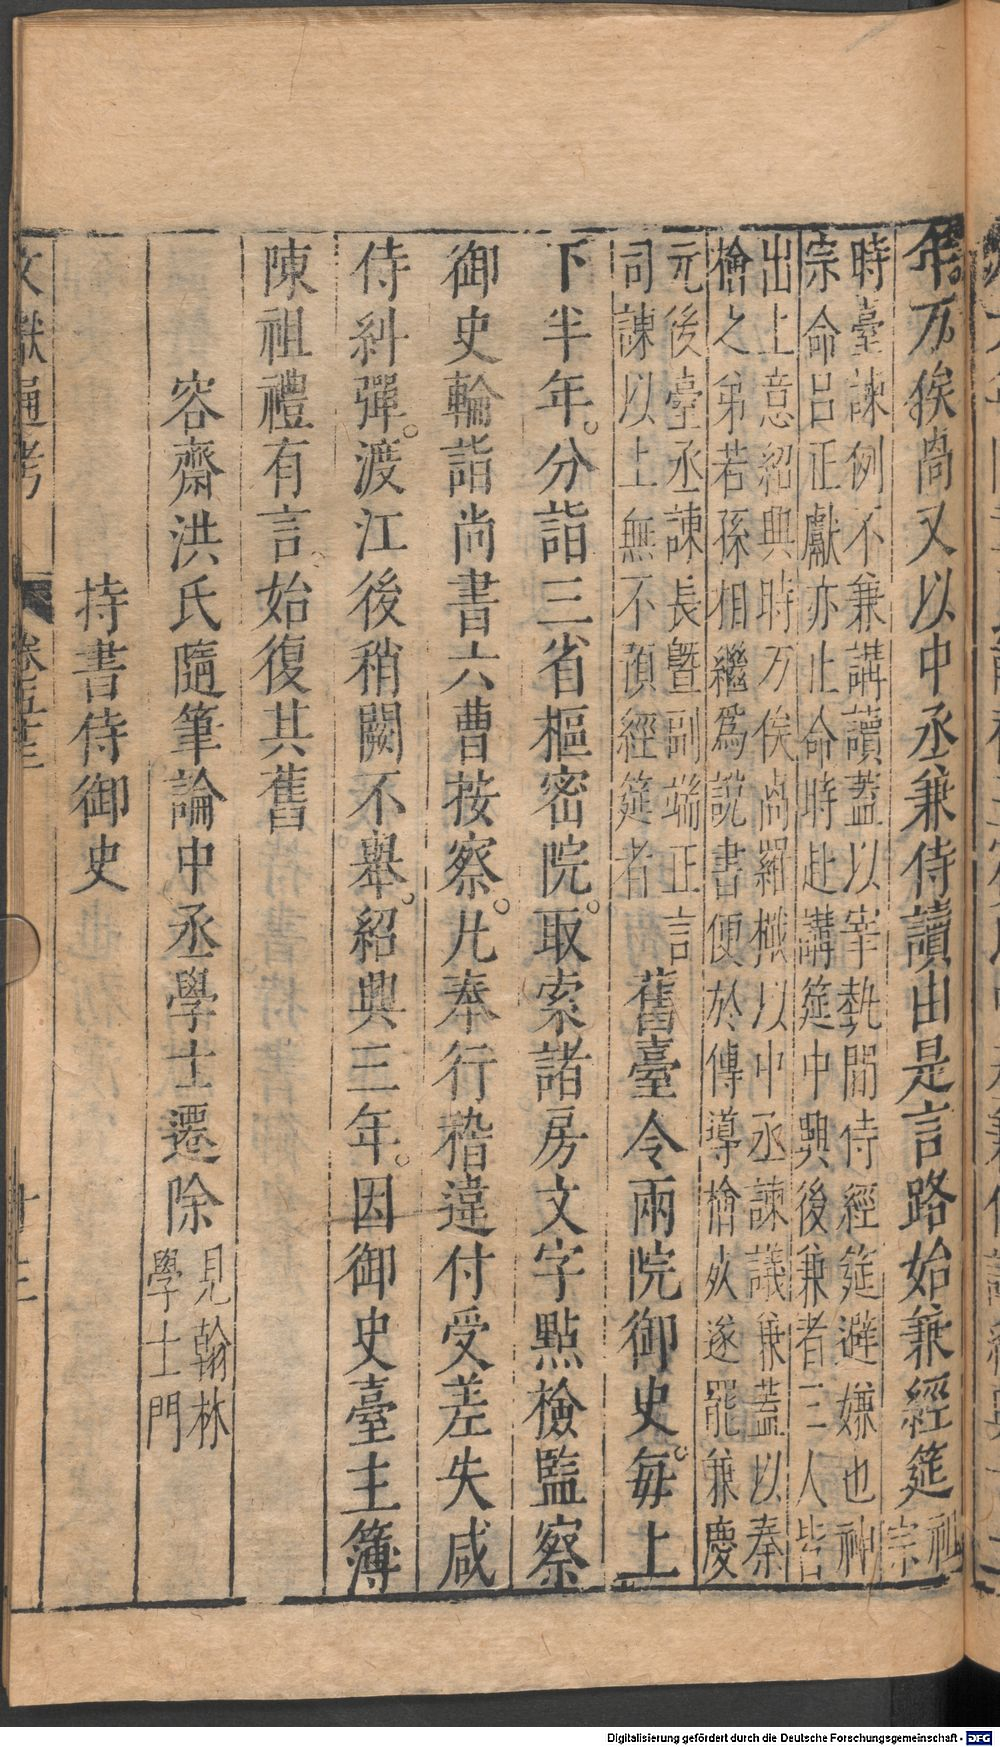 年万俟卨又以中丞兼侍讀由是言路始兼經筵祖宗
時臺諫例不兼講讀蓋以宰執間侍經筵避嫌也神
宗命吕正獻亦止命時赴講筵中興後兼者三人皆
出上意紹興時万俟卨羅檝以中丞諫議兼蓋以秦
檜之弟若孫相繼為說書便於傳導檜死遂罷兼慶
元後臺丞諫長曁副端正言
司諫以上無不預經筵者
舊臺令兩院御史每上
下半年分詣三省樞密院取索諸房文字點檢監察
御史輪詣尚書六曹按察凡奉行稽違付受差失咸
侍糾彈渡江後稍闕不舉紹興三年因御史臺主簿
陳祖禮有言始復其舊
容齋洪氏隨筆論中丞學士遷除見翰林
學士門
持書侍御史
文獻通考 卷五十三
Digitalisierung gefördert durch die Deutsche Forschungsgemeinschaft - DFG